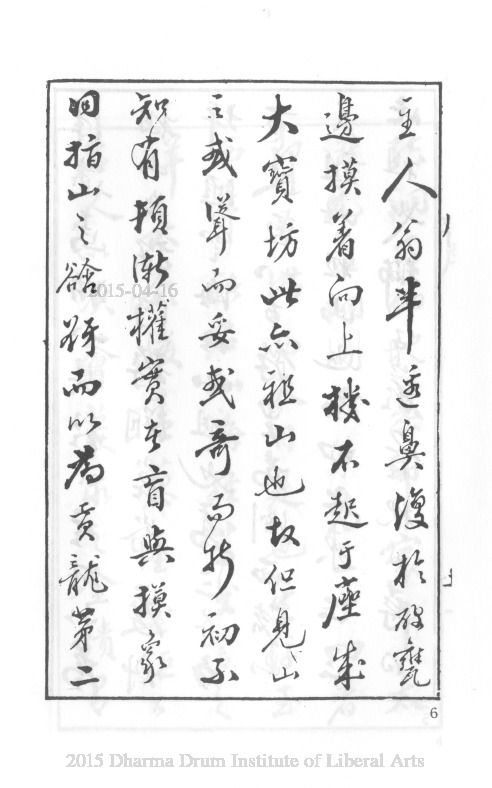 主人翁半透鼻復於破甕
邊摸着向上機不起于座成
大寶坊此亦祖山也故但見山
之或聳而妥或奇而折初不
知有頓漸權實盲與摸象
指山之谽谺而以為黃龍第二
2015-04-16
6
2015 Dharma Drum Institute of Liberal Arts